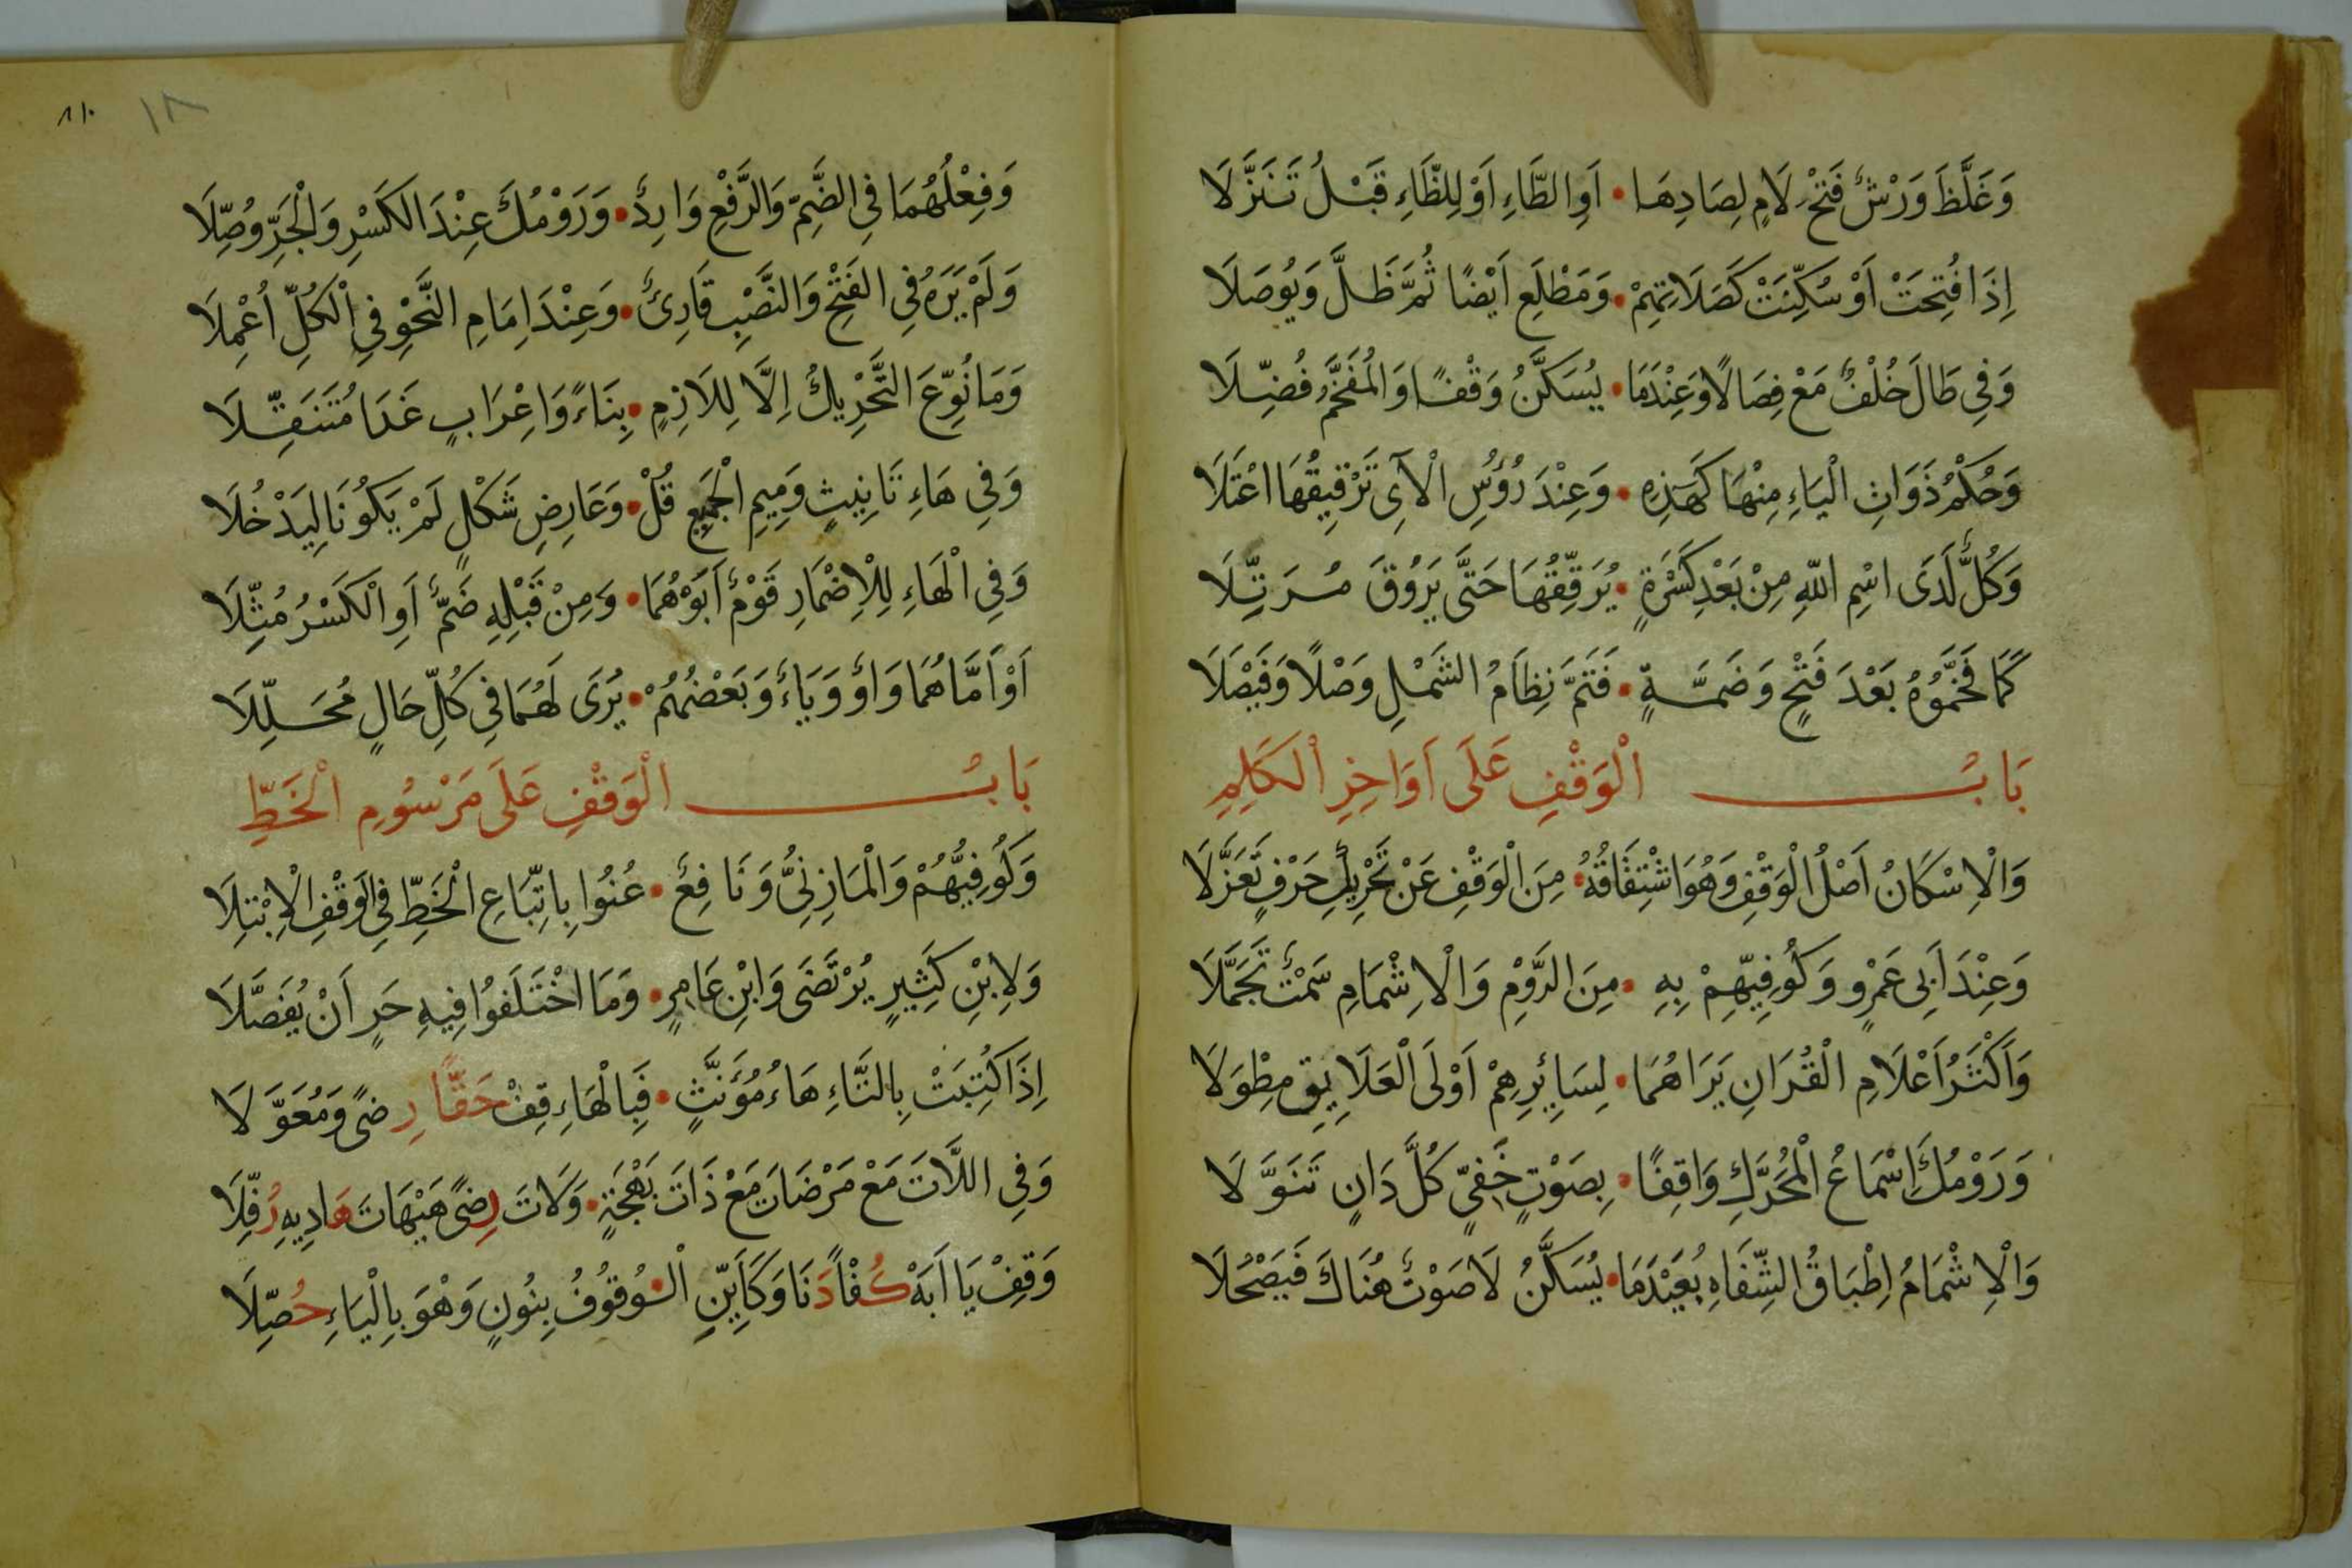 وَغَلَّظَ وَرْشٌ فَتْحَ لَامٍ لِصَادِهَا • اَوِ الطَّاءِ اَوْ لِلظَّاءِ قَبْلُ تَنَزَّلَا
اِذَا فُتِحَتْ اَوْ سُكِّنَتْ كَصَلَاتِهِمْ • وَمَطْلَعِ اَيْضًا ثُمَّ ظَلَّ وَيُوصَلَا
وَفِي طَالَ خُلْفٌ مَعْ فِصَالًا وَعِنْدَمَا • يُسَكَّنُ وَقْفًا وَالْمُفَخَّمُ فُضِّلَا
وَحُكْمُ ذَوَاتِ الْيَاءِ مِنْهَا كَهٰذِهِ • وَعِنْدَ رُؤُسِ الْآيِ تَرْقِيقُهَا اعْتَلَا
وَكُلٌّ لَدَى اسْمِ اللّٰهِ مِنْ بَعْدِ كَسْرَةٍ • يُرَقِّقُهَا حَتَّى يَرُوقَ مُرَتِّلَا
كَمَا فَخَّمُوهُ بَعْدَ فَتْحٍ وَضَمَّةٍ • فَتَمَّ نِظَامُ الشَّمْلِ وَصْلًا وَفَيْصَلَا
بَابُ الْوَقْفِ عَلَى اَوَاخِرِ الْكَلِمِ
وَالْاِسْكَانُ اَصْلُ الْوَقْفِ وَهُوَ اشْتِقَاقُهُ • مِنَ الْوَقْفِ عَنْ تَحْرِيكِ حَرْفٍ تَعَزَّلَا
وَعِنْدَ اَبِي عَمْرٍو وَكُوفِيِّهِمْ بِهِ • مِنَ الرَّوْمِ وَالْاِشْمَامِ سَمْتٌ تَجَمَّلَا
وَاَكْثَرُ اَعْلَامِ الْقُرَانِ يَرَاهُمَا • لِسَائِرِهِمْ اَوْلَى الْعَلَايِقِ مِطْوَلَا
وَرَوْمُكَ اِسْمَاعُ الْمُحَرَّكِ وَاقِفًا • بِصَوْتٍ خَفِيٍّ كُلَّ دَانٍ تَنَوَّلَا
وَالْاِشْمَامُ اِطْبَاقُ الشِّفَاهِ بُعَيْدَمَا • يُسَكَّنُ لَا صَوْتٌ هُنَاكَ فَيَصْحَلَا
١٨
وَفِعْلُهُمَا فِي الضَّمِّ وَالرَّفْعِ وَارِدٌ • وَرَوْمُكَ عِنْدَ الكَسْرِ وَالْجَرِّ وُصِّلَا
وَلَمْ يَرَهُ فِي الفَتْحِ وَالنَّصْبِ قَارِئٌ • وَعِنْدَ اِمَامِ النَّحْوِ فِي الْكُلِّ اُعْمِلَا
وَمَا نُوِّعَ التَّحْرِيكُ اِلَّا لِلَازِمٍ • بِنَاءً وَاِعْرَابٍ غَدَا مُتَنَقِّلَا
وَفِي هَاءِ تَانِيثٍ وَمِيمِ الْجَمِيعِ قُلْ • وَعَارِضِ شَكْلٍ لَمْ يَكُونَا لِيَدْخُلَا
وَفِي الْهَاءِ لِلْاِضْمَارِ قَوْمٌ اَبَوْهُمَا • وَمِنْ قَبْلِهِ ضَمٌّ اَوِ الْكَسْرُ مُثِّلَا
اَوْ اَمَّاهُمَا وَاوٌ وَيَاءٌ وَبَعْضُهُمْ • يُرَى لَهُمَا فِي كُلِّ حَالٍ مُحَلِّلَا
بَابُ الْوَقْفِ عَلَى مَرْسُومِ الْخَطِّ
وَكُوفِيُّهُمْ وَالْمَازِنِيُّ وَنَافِعٌ • عُنُوا بِاتِّبَاعِ الْخَطِّ فِي الوَقْفِ الْاِبْتِلَا
وَلِابْنِ كَثِيرٍ يُرْتَضَى وَابْنِ عَامِرٍ • وَمَا اخْتَلَفُوا فِيهِ حَرٍ اَنْ يُفَصَّلَا
اِذَا كُتِبَتْ بِالتَّاءِ هَاءُ مُؤَنَّثٍ • فَبِالْهَاءِ قِفْ حَقًّا رِضًى وَمُعَوَّلَا
وَفِي اللَّاتَ مَعْ مَرْضَاتَ مَعْ ذَاتَ بَهْجَةٍ • وَلَاتَ رِضًى هَيْهَاتَ هَادِيهِ رُفِّلَا
وَقِفْ يَا اَبَهْ كُفْاً دَنَا وَكَاَيِّنِ الْـ • ـوُقُوفُ بِنُونٍ وَهْوَ بِالْيَاءِ حُصِّلَا